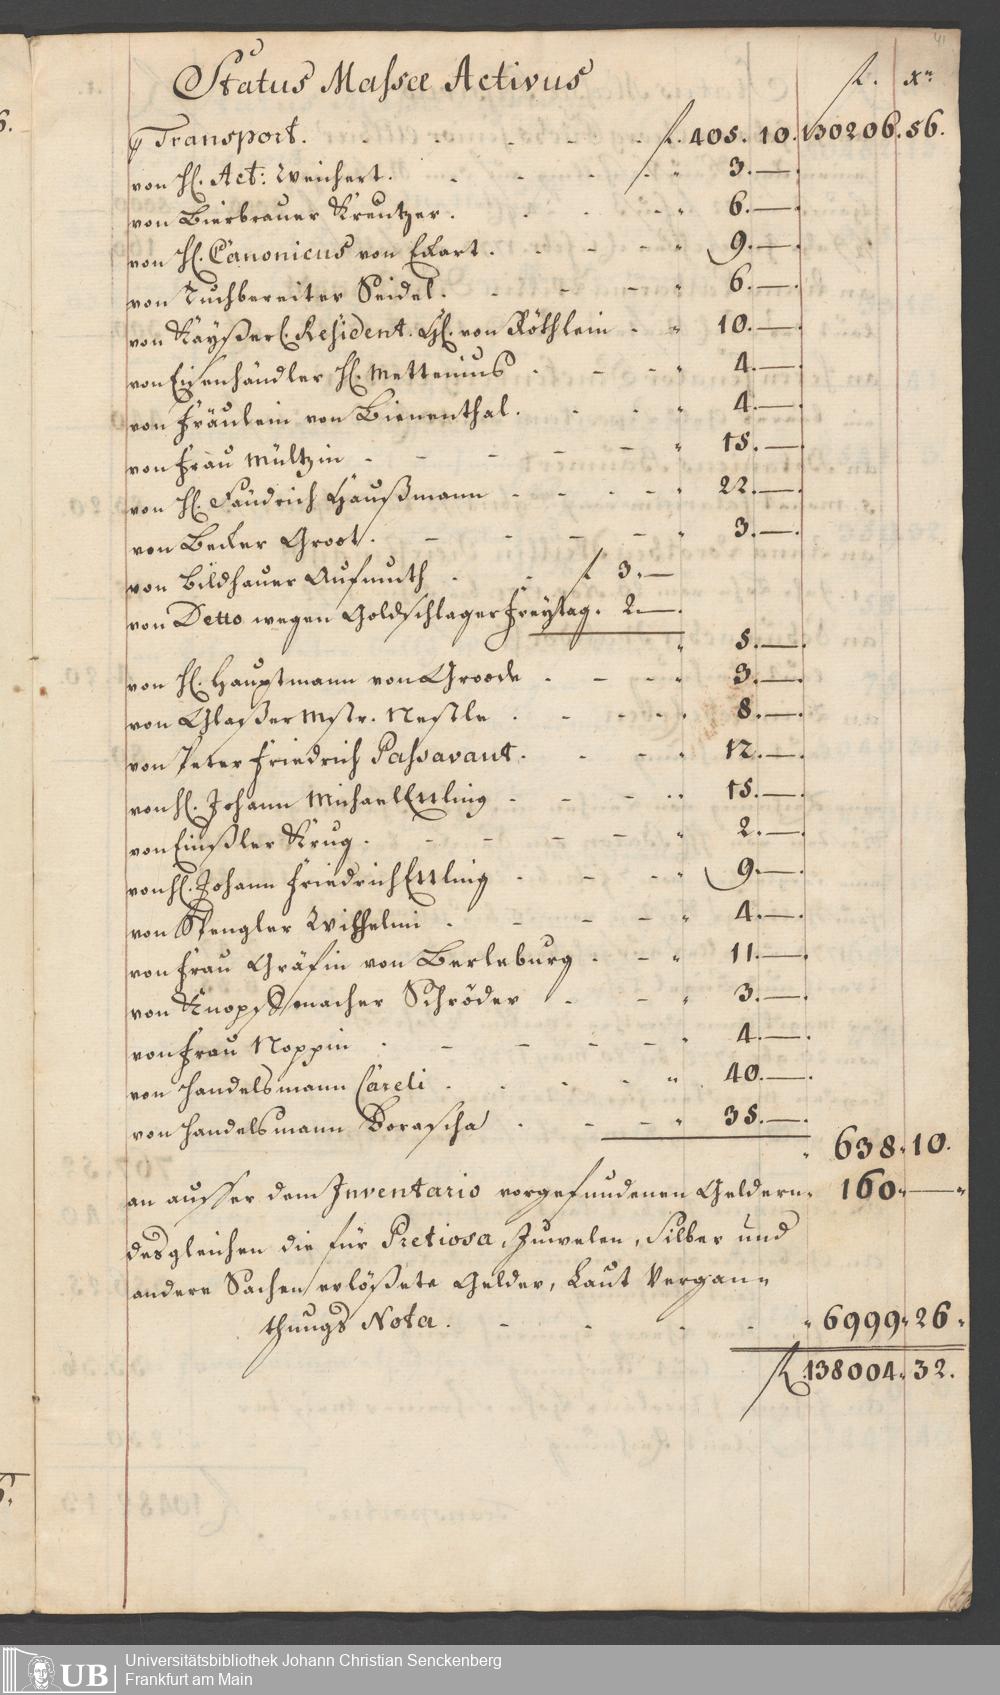 41
Status Massæ Activus
fl. xr.
p Transport. fl. 405. 10. 130206. 56.
von H. Act: Weichert. " 3. —.
von Bierbrauer Kreutzer. " 6. —.
von H. Canonicus von Eckart. " 9. —.
von Tuchbereiter Seidel. " 6. —.
von Kayßerl. Resident. H. von Röthlein " 10. —.
von Eisenhändler H. Mettenius " 4. —.
von Fräulein von Bienenthal. " 4. —.
von Frau Mültzin " 15. —.
von H. Fändrich Haußmann " 22. —.
von Becker Groot. " 3. —.
von Bildhauer Aufmuth fl 3. —
von Detto wegen Goldschlager Freytag. 2. —.
" 5. —.
von H. Hauptmann von Groode " 3. —.
von Glaßer Mstr. Nestle " 8. —.
von Peter Friedrich Passavant. " 12. —.
von H. Johann Michael Ettling " 15. —.
von Einßler Krug. " 2. —.
von H. Johann Friedrich Ettling " 9. —.
von Spengler Wilhelmi " 4. —.
von Frau Gräfin von Berleburg " 11. —.
von Knopfmacher Schröder " 3. —.
von Frau Noppin " 4. —.
von Handelsmann Careli " 40. —.
von Handelsmann Borascha " 35. —.
" 638. 10.
an ausser dem Inventario vorgefundenen Geldern " 160 " — "
desgleichen die für Pretiosa, Juwelen, Silber und
andere Sachen erlößete Gelder, Laut Vergan=
thungs Nota. " 6999 " 26 "
fl. 138004 " 32.
UB
Universitätsbibliothek Johann Christian Senckenberg
Frankfurt am Main